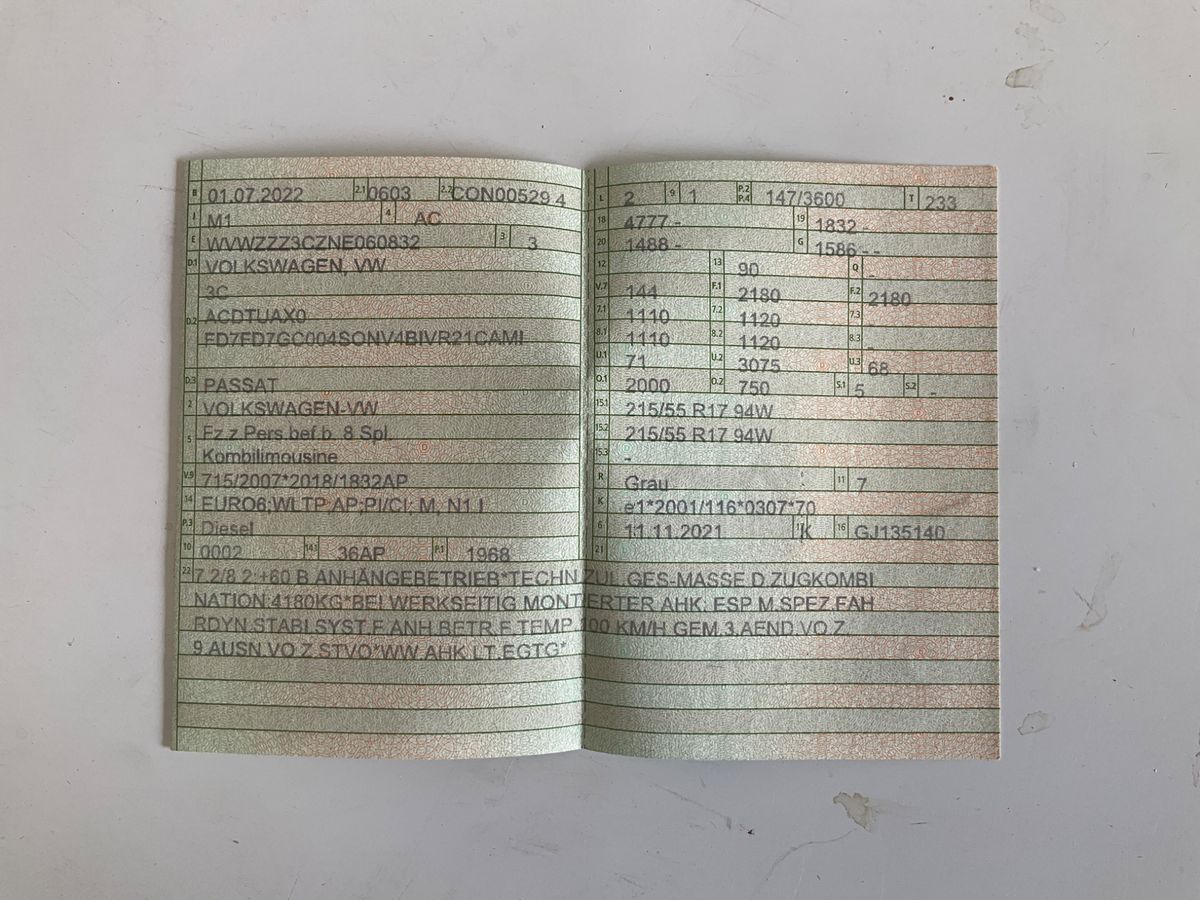 B 01.07.2022 2.1 0603 2.2 CON00529 4
J M1 4 AC
E WVWZZZ3CZNE060832 3 3
D.1 VOLKSWAGEN, VW
3C
D.2 ACDTUAX0
FD7FD7GC004SONV4BIVR21CAMI
D.3 PASSAT
2 VOLKSWAGEN-VW
5 Fz.z.Pers.bef.b. 8 Spl.
Kombilimousine
V.9 715/2007*2018/1832AP
14 EURO6;WLTP;AP;PI/CI; M, N1 I
P.3 Diesel
10 0002 14.1 36AP P.1 1968
L 2 9 1 P.2 P.4 147/3600 T 233
18 4777 - 19 1832 -
20 1488 - G 1586 - -
12 - 13 90 Q -
V.7 144 F.1 2180 F.2 2180
7.1 1110 7.2 1120 7.3 -
8.1 1110 8.2 1120 8.3 -
U.1 71 U.2 3075 U.3 68
O.1 2000 O.2 750 S.1 5 S.2 -
15.1 215/55 R17 94W
15.2 215/55 R17 94W
15.3 -
R Grau 11 7
K e1*2001/116*0307*70
6 11.11.2021 17 K 16 GJ135140
21
22 7.2/8.2:+60 B.ANHÄNGEBETRIEB*TECHN.ZUL.GES-MASSE D.ZUGKOMBI
NATION:4180KG*BEI WERKSEITIG MONTIERTER AHK: ESP M.SPEZ.FAH
RDYN.STABI.SYST.F.ANH.BETR.F.TEMP.100 KM/H GEM.3.AEND.VO.Z.
9.AUSN.VO.Z.STVO*WW.AHK LT.EGTG*